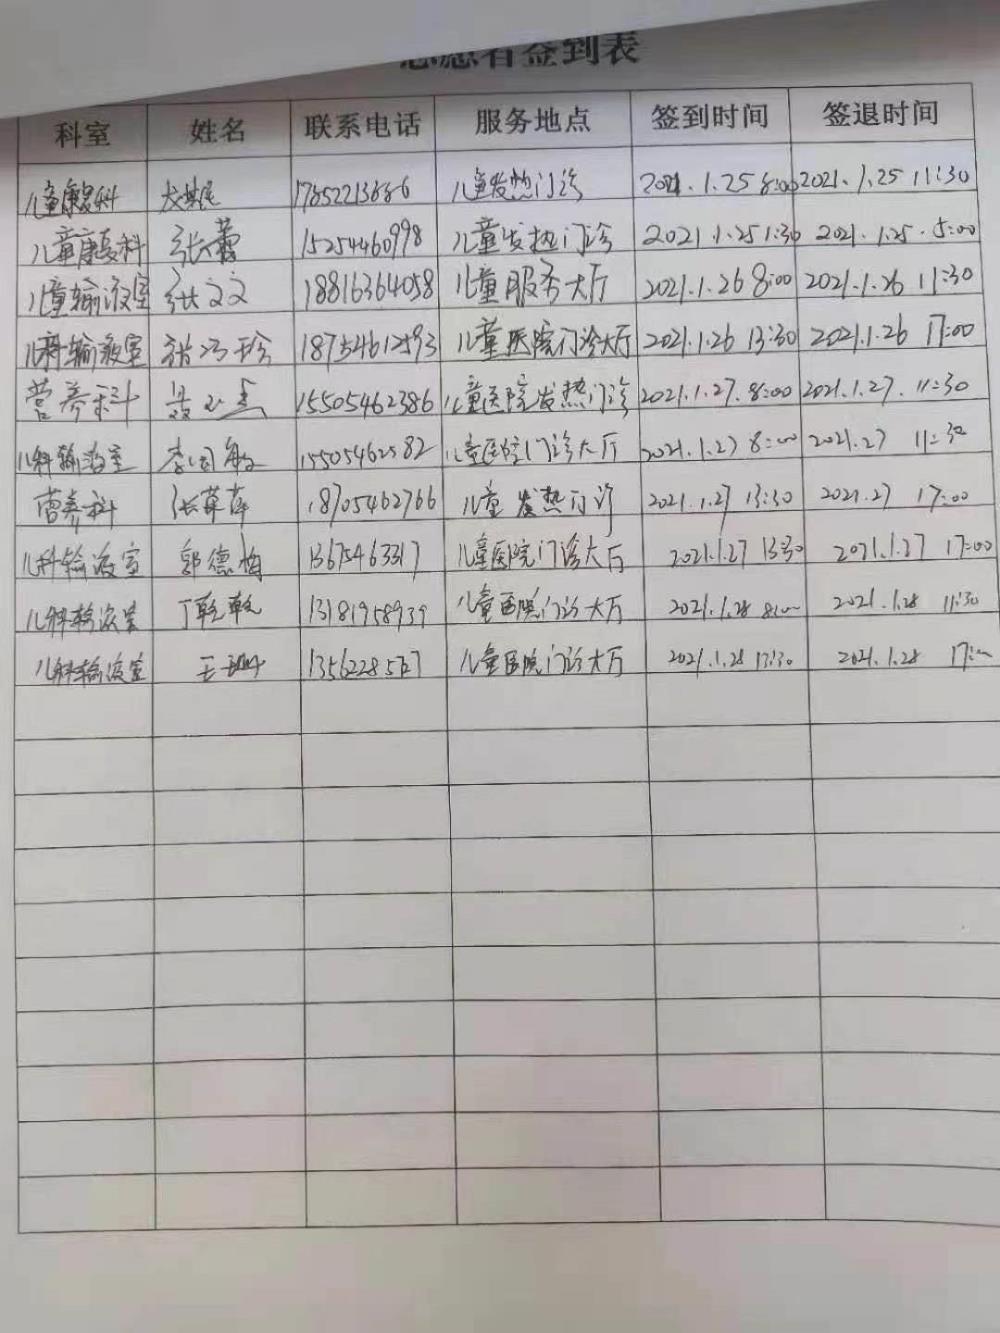 志愿者签到表
科室 姓名 联系电话 服务地点 签到时间 签退时间
儿童康复科 儿童发热门诊 2021.1.25 8:00 2021.1.25 11:30
儿童康复科 张蕾 15254460998 儿童发热门诊 2021.1.25 1:30 2021.1.25.5:00
儿童输液室 张文文 18816364058 儿童服务大厅 2021.1.26 8:00 2021.1.26 11:30
儿科输液室 儿童医院门诊大厅 2021.1.26 13:30 2021.1.26 17:00
营养科 15505462386 儿童医院发热门诊 2021.1.27.8:00 2021.1.27.11:30
儿科输液室 儿童医院门诊大厅 2021.1.27 8:00 2021.27 11:30
营养科 张萍萍 18705462766 儿童发热门诊 2021.1.27 13:30 2021.27 17:00
儿科输液室 郭德梅 13675463317 儿童医院门诊大厅 2021.1.27 13:30 2021.1.27 17:00
儿科输液室 丁乾乾 13181958939 儿童医院门诊大厅 2021.1.28 8:00 2021.1.28 11:30
儿科输液室 儿童医院门诊大厅 2021.1.28 13:30 2021.1.28 17:00